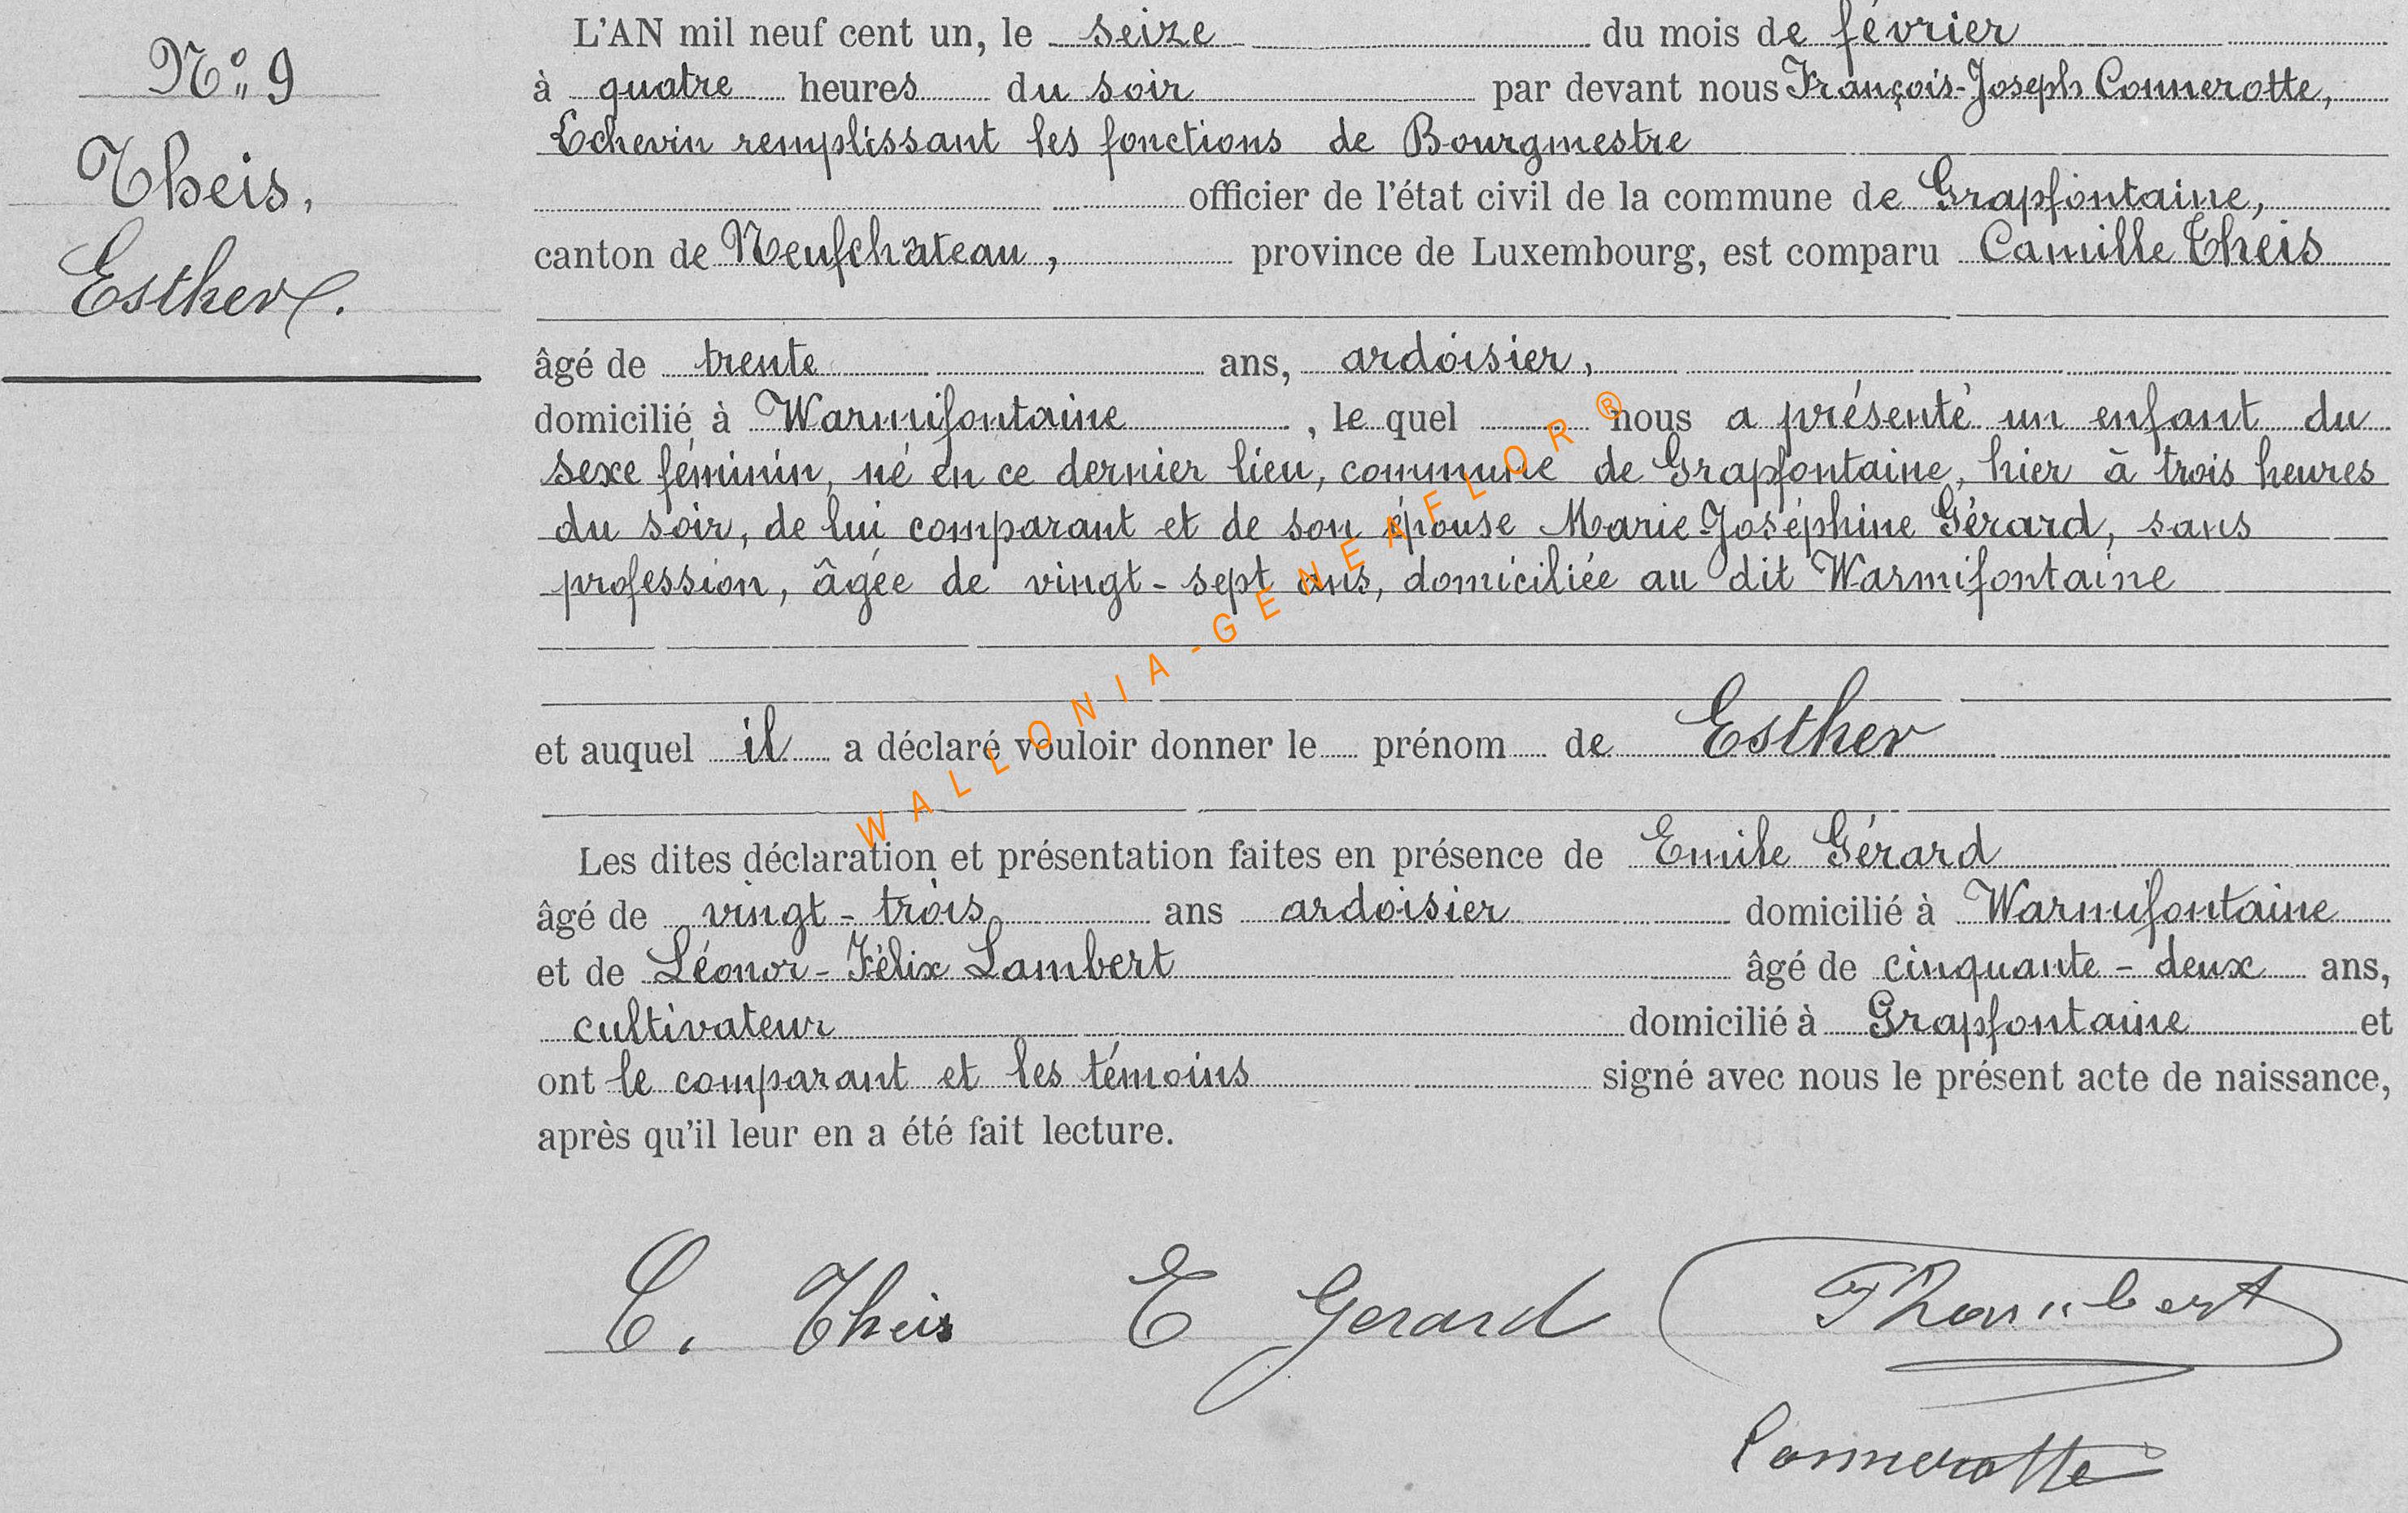 N° 9
Theis,
Esther.
L'AN mil neuf cent un, le seize du mois de février
à quatre heures du soir par devant nous François-Joseph Connerotte,
Echevin remplissant les fonctions de Bourgmestre
officier de l'état civil de la commune de Grapfontaine,
canton de Neufchâteau, province de Luxembourg, est comparu Camille Theis
âgé de trente ans, ardoisier,
domicilié à Warmifontaine, le quel nous a présenté un enfant du
sexe féminin, né en ce dernier lieu, commune de Grapfontaine, hier à trois heures
du soir, de lui comparant et de son épouse Marie-Joséphine Gérard, sans
profession, âgée de vingt-sept ans, domiciliée au dit Warmifontaine
et auquel il a déclaré vouloir donner le prénom de Esther
Les dites déclaration et présentation faites en présence de Emile Gérard
âgé de vingt-trois ans ardoisier domicilié à Warmifontaine
et de Léonor-Félix Lambert âgé de cinquante-deux ans,
cultivateur domicilié à Grapfontaine et
ont le comparant et les témoins signé avec nous le présent acte de naissance,
après qu'il leur en a été fait lecture.
C. Theis E Gerard
Connerotte
WALLONIA-GENEAFLOR®